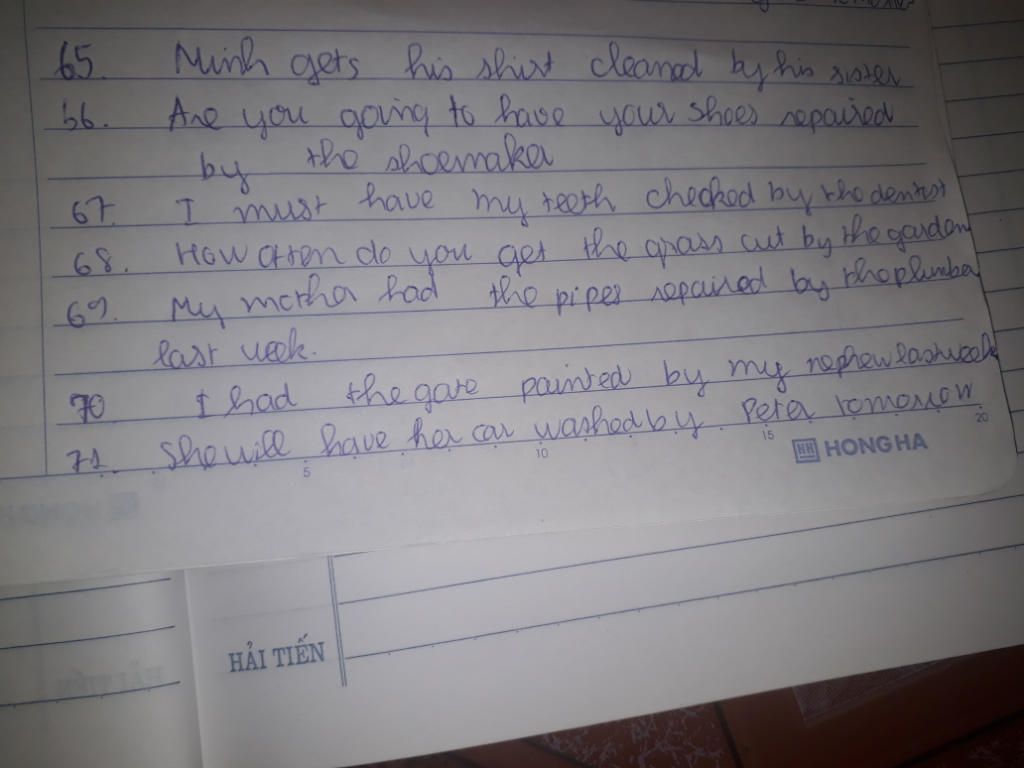 65. Minh gets his shirt cleaned by his sister
56. Are you going to have your shoes repaired
by the shoemaker
67. I must have my teeth checked by the dentist
68. How often do you get the grass cut by the garden
69. My mother had the pipes repaired by the plumber
last week.
70 I had the gate painted by my nephew last week
71. She will have her car washed by Peter tomorrow
5 10 15 20
HH HONG HA
HẢI TIẾN